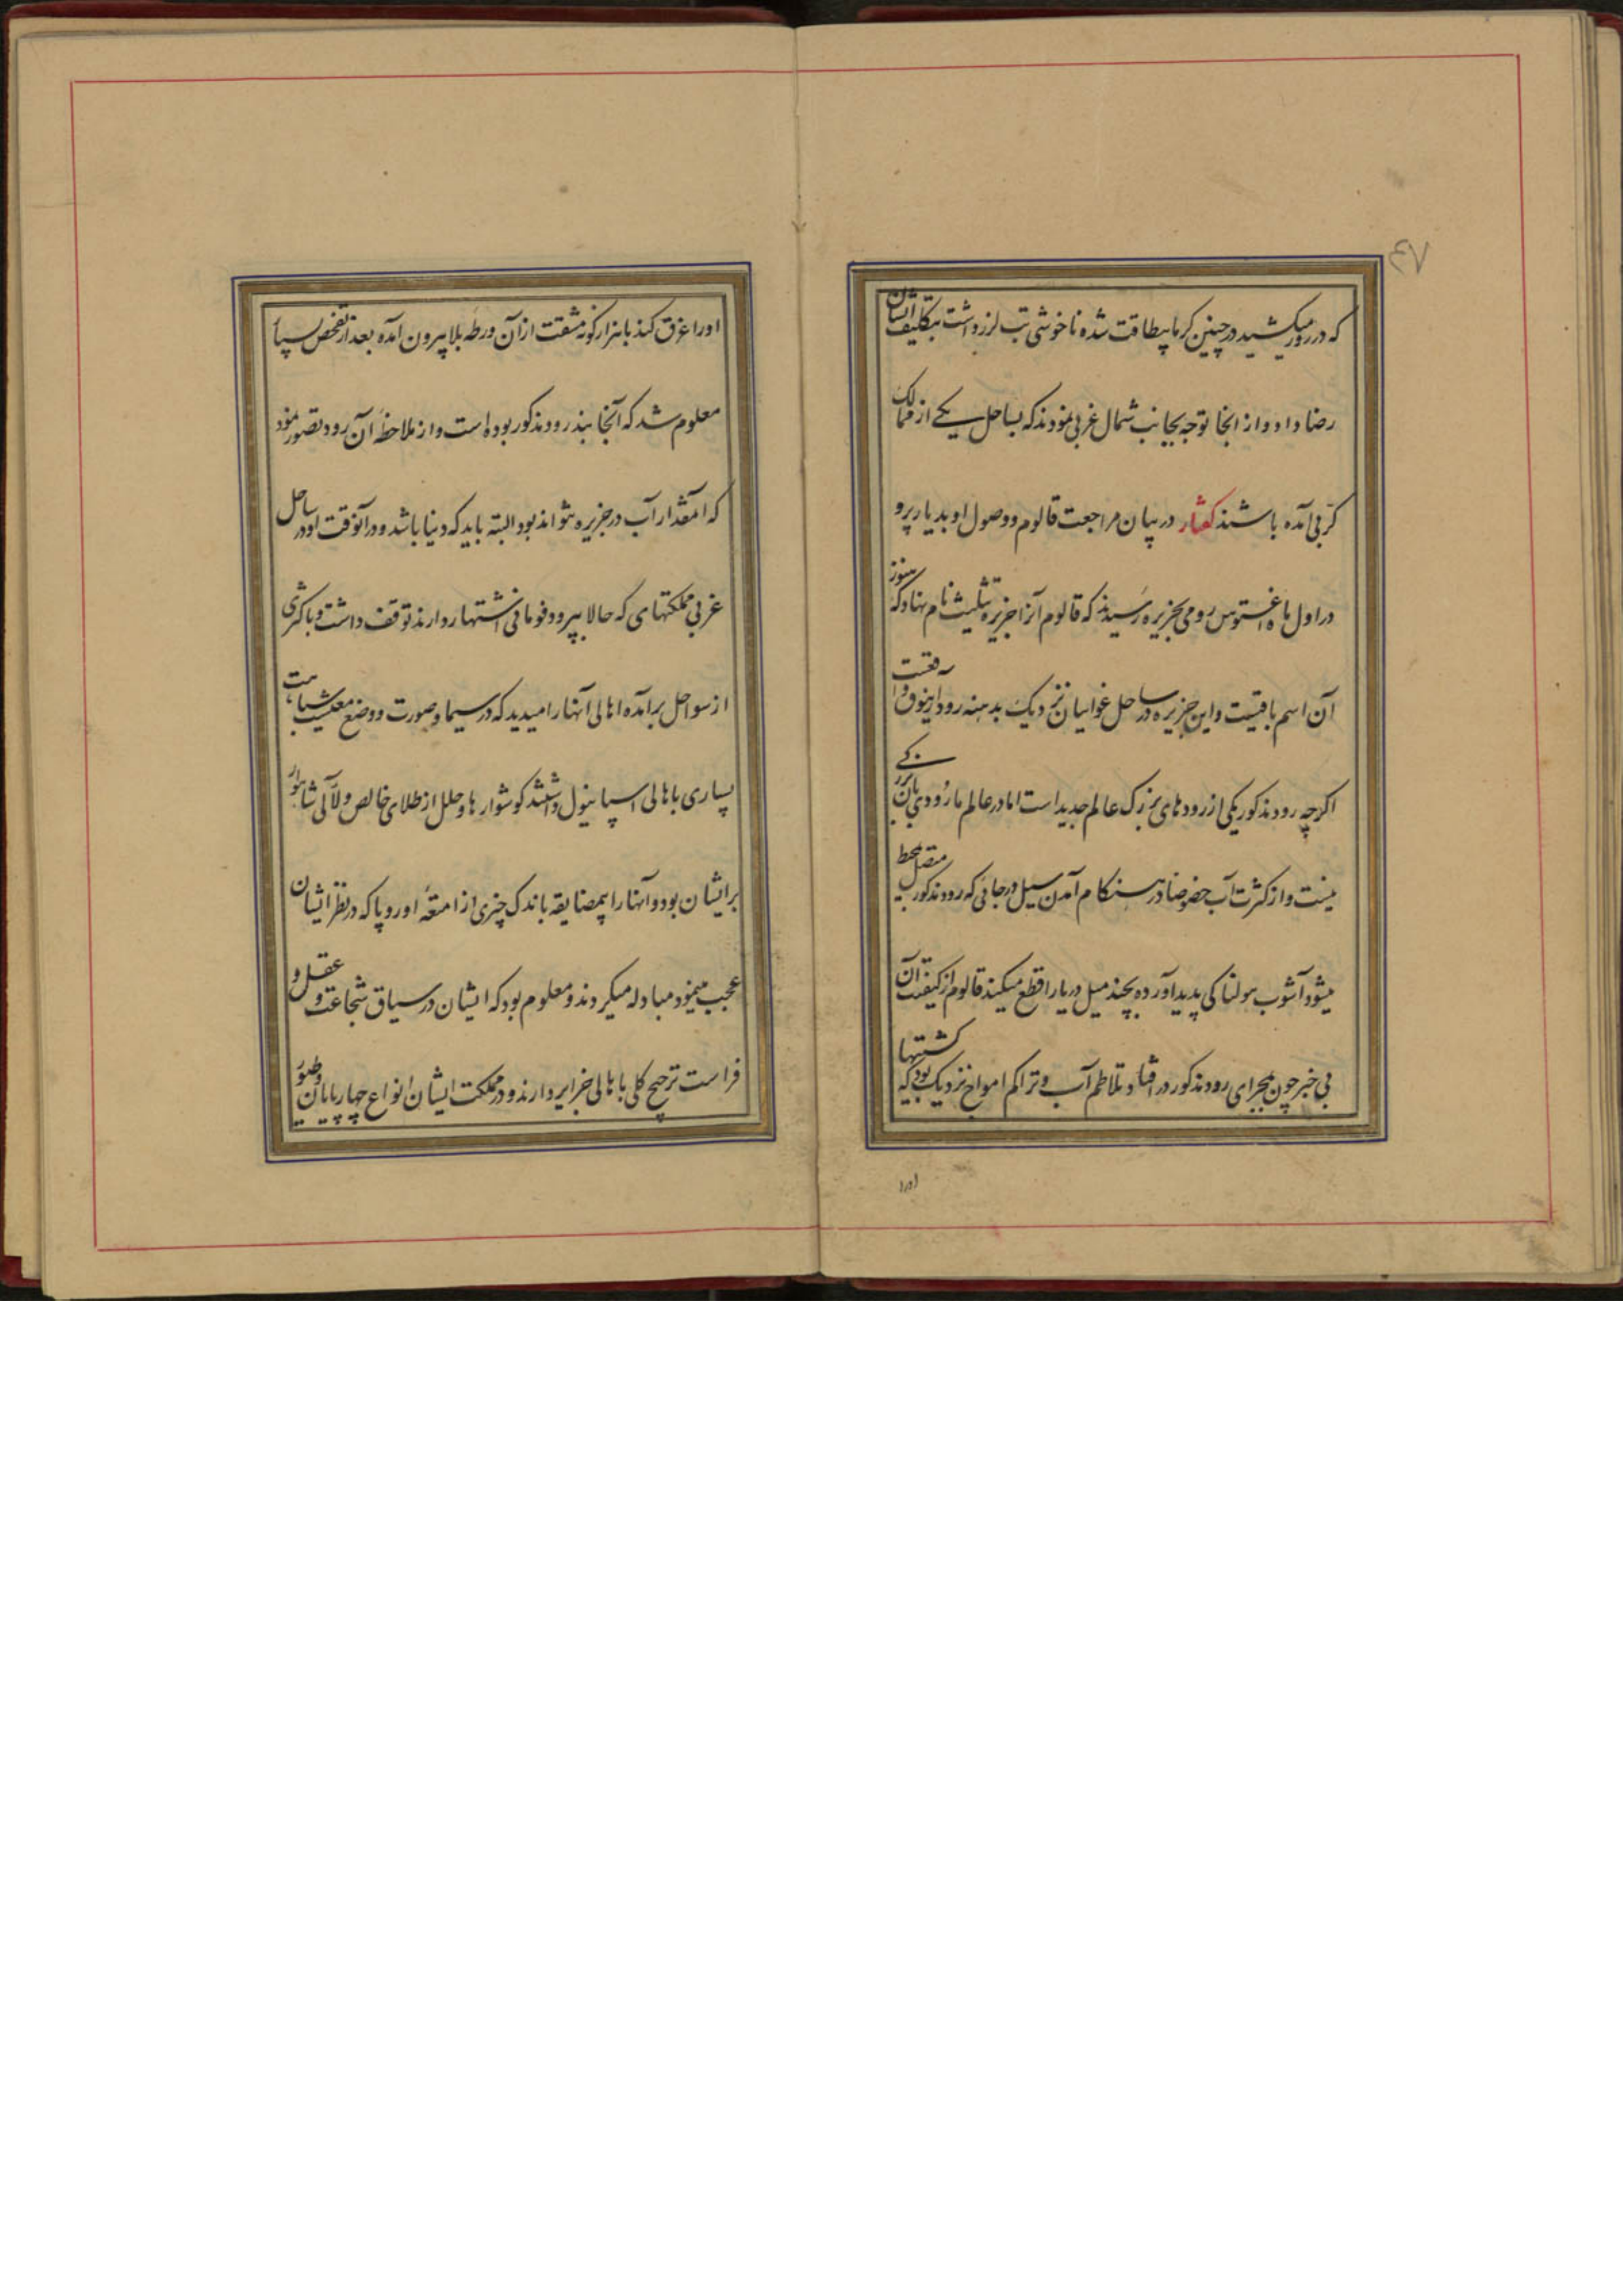 ۷۳
که در روز میکشید در چنین کرما بیطاقت شده ناخوشی تب لرز داشت بتکلیف ایشان
رضا داد و از انجا توجه بجانب شمال غربی نمودند که بساحل یکے از ممالک
کربی آمده باشند کفتار در بیان مراجعت قالوم و وصول او بدیار پرو
در اول ماه اغستوس رومی بجزیره رسیدند که قالوم آنرا جزیره تثلیث نام نهاد که هنوز
آن اسم باقیست و این جزیره در ساحل غوایان نزدیک بدهنه رود اینوقو واقعست
اکرچه رود مذکور یکی از رودهای بزرک عالم جدید است اما در عالم ما رودی بان بزرکے
نیست و از کثرت آب خصوصا در هنکام آمدن سیل در جائی که رود مذکور بمحیط متصل
میشود آشوب هولناکی پدید آورده بچند میل دریا را قطع میکند قالوم از کیفیت آن
بی خبر چون بمجرای رود مذکور در افتاد تلاطم آب و تراکم امواج نزدیک بود که کشتیها
اورا
اورا غرق کند با هزار کونه مشقت از آن ورطه بلا بیرون آمده بعد از تفحص بسیار
معلوم شد که آنجا بند رود مذکور بوده است و از ملاحظه آن رود تصور نمود
که آنمقدار آب در جزیره نتواند بود البته باید که دنیا باشد و در آنوقت او در ساحل
غربی مملکتهای که حالا بپرو و قومانی اشتهار دارند توقف داشت و با کثری
از سواحل برآمده اهالی آنها را میدید که در سیما و صورت و وضع معیشت شباهت
بسیاری باهالی اسپانیول داشتند کوشوارها و حلل از طلای خالص و لآلی شاهوار
بر ایشان بود و آنها را بیمضایقه باندک چیزی از امتعه اوروپا که در نظر ایشان
عجب مینمود مبادله میکردند و معلوم بود که ایشان در سیاق شجاعت و عقل و
فراست ترجیح کلی باهالی جزایر دارند و در مملکت ایشان انواع چهارپایان و طیور